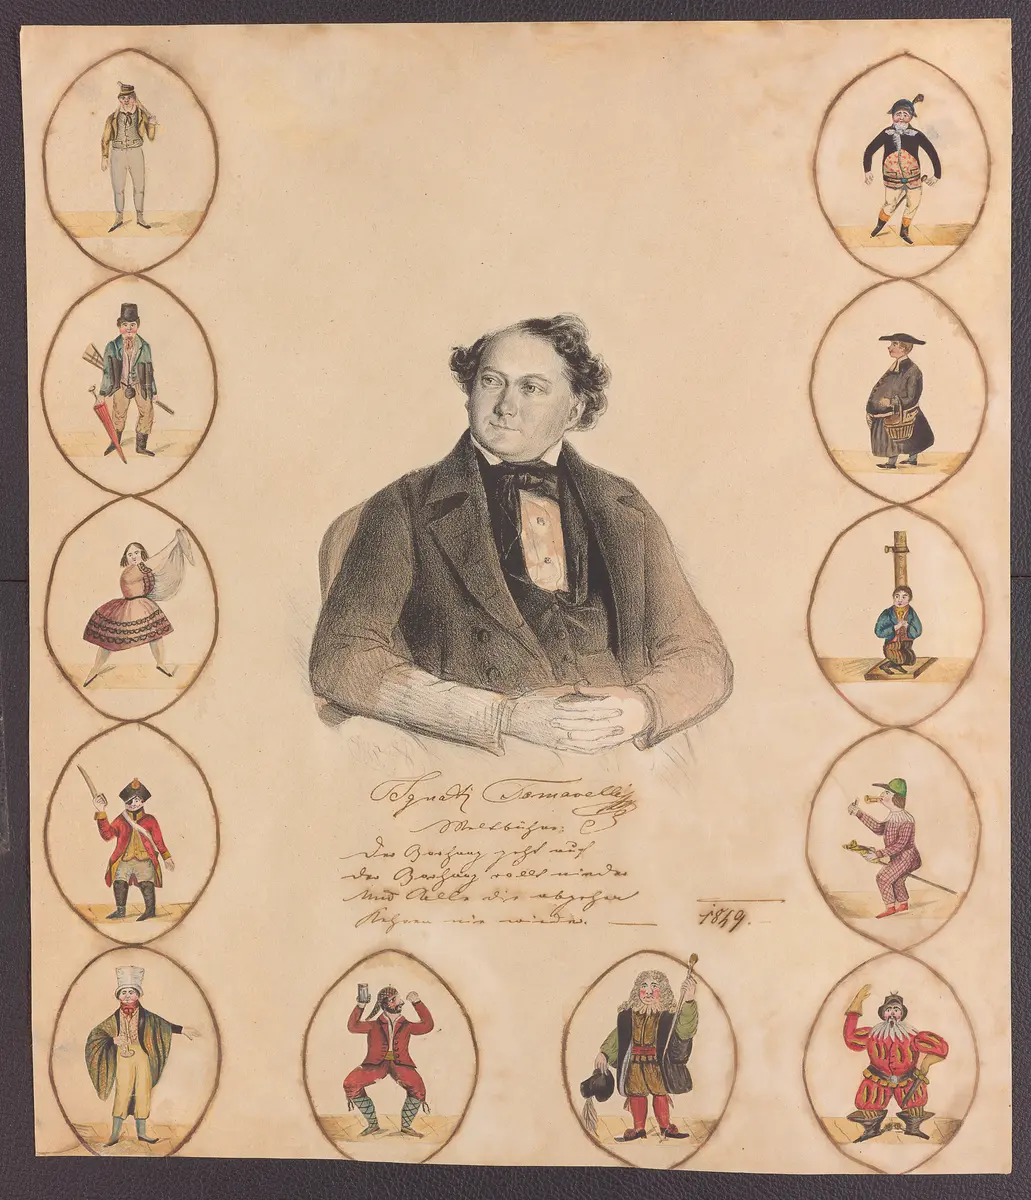 Ignatz Tomaselli
Weltbühne:
Der Vorhang geht auf
der Vorhang rollt nieder
Und Alle die abgehen
Kehren nie wieder. — 1849.